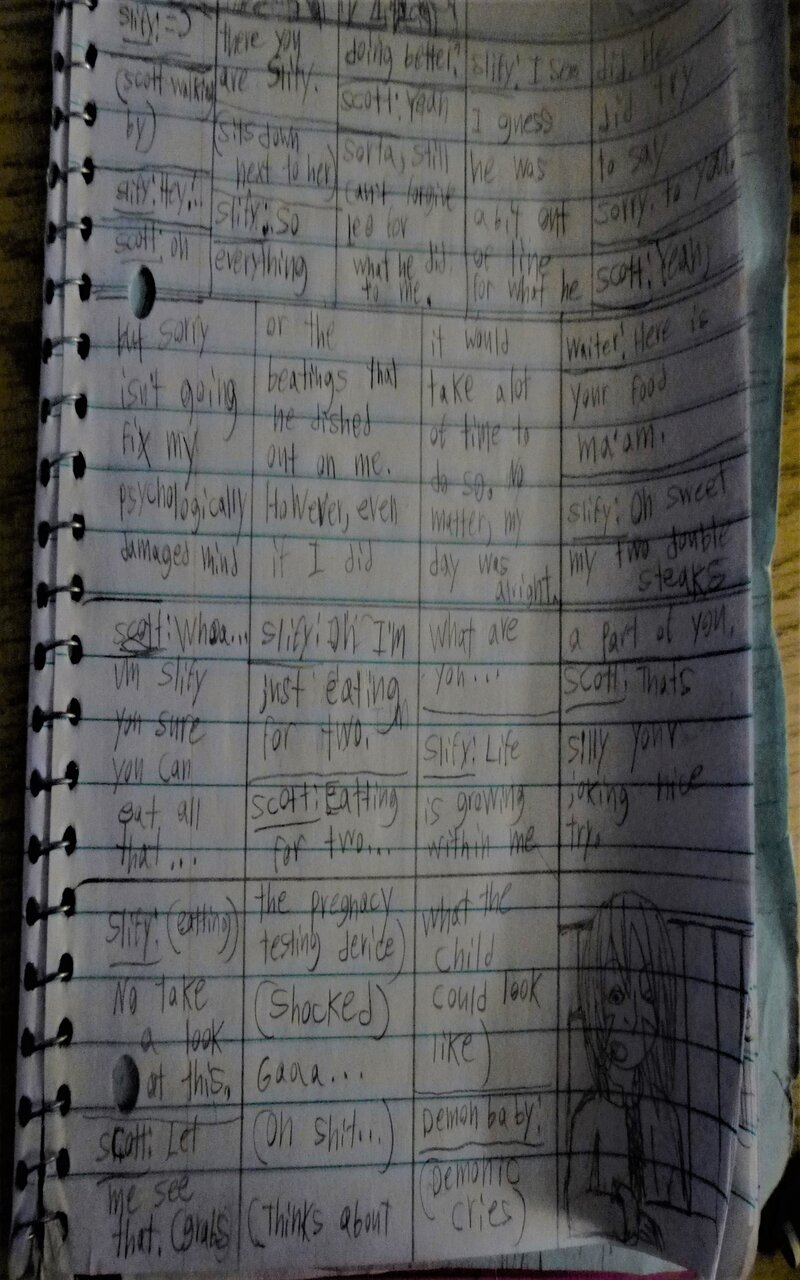 slify: =)
(scott walking
by)
slify: Hey!!
scott: oh
there you
are Slify.
(sits down
next to her)
slify: So
everything
doing better?
scott: Yeah
sorta, still
can't forgive
led for
what he did
to me.
slify: I see
I guess
he was
a bit out
of line
for what he
did. He
did try
to say
sorry. to you.
scott: Yeah,
but sorry
isn't going
fix my
psychologically
damaged mind
or the
beatings that
he dished
out on me.
However, even
if I did
it would
take alot
of time to
do so. No
matter, my
day was
alright.
waiter: Here is
your food
ma'am.
slify: Oh sweet
my two double
steaks
scott: Whoa...
Um slify
you sure
you can
eat all
that...
slify: Oh I'm
just eating
for two.
scott: Eatting
for two...
What are
you...
slify: Life
is growing
within me
a part of you.
scott: Thats
silly your
joking nice
try.
slify: (eatting)
No take
a look
at this.
scott: Let
me see
that. (grabs
the pregnacy
testing device)
(Shocked)
Gaaa...
(Oh shit...)
(thinks about
what the
child
could look
like)
Demon baby:
(Demonic
cries)